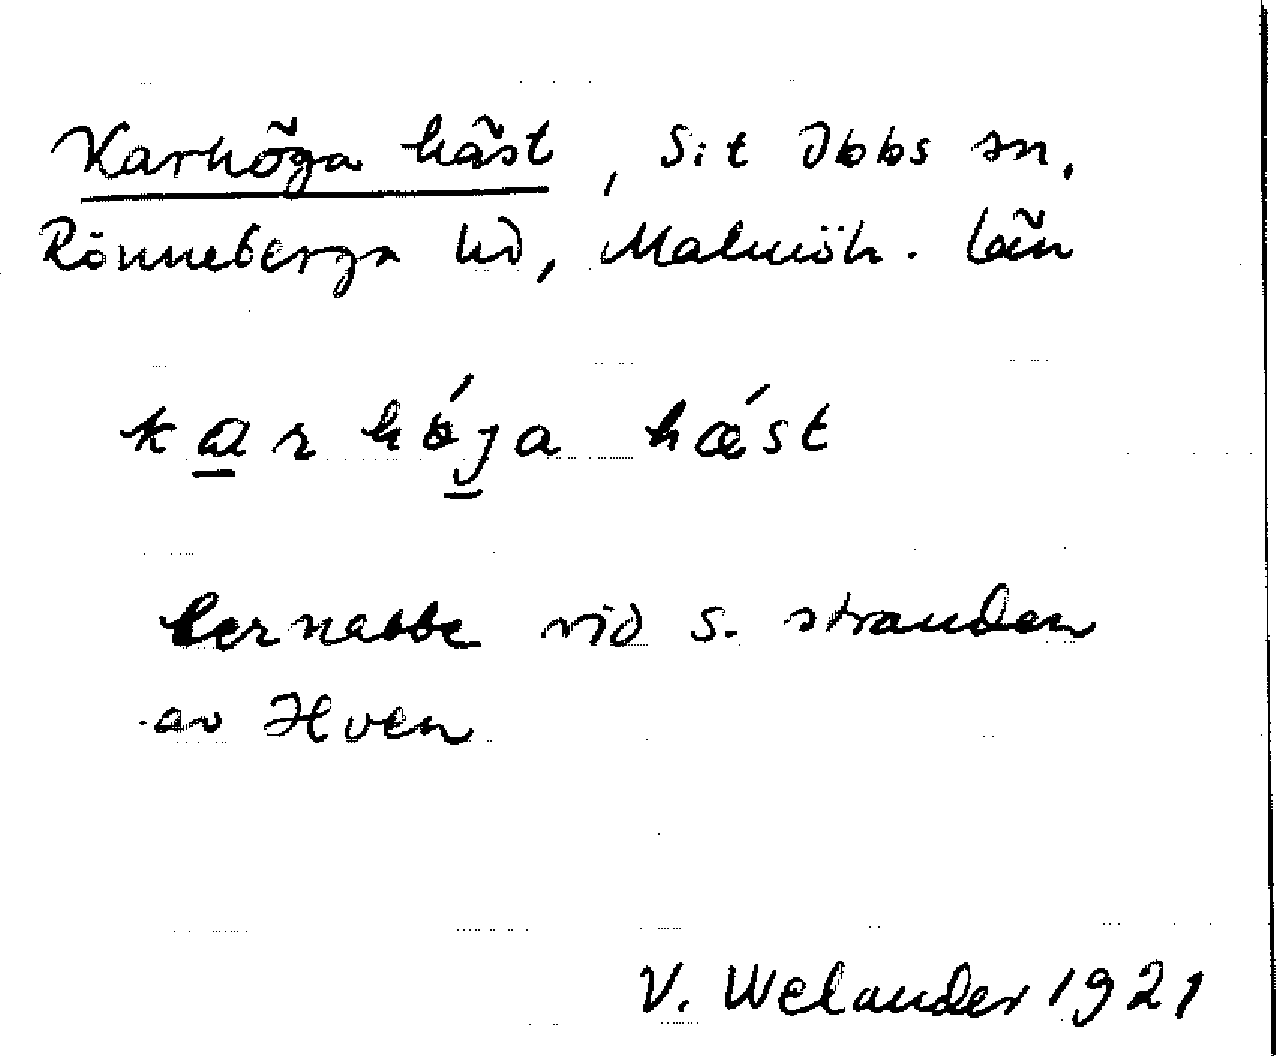 Karhöga häst, S:t Ibbs sn.
Rönneberga hd, Malmöh. län
kar höja hǽst
lernabbe vid s. stranden
av Hven
V. Welander 1921